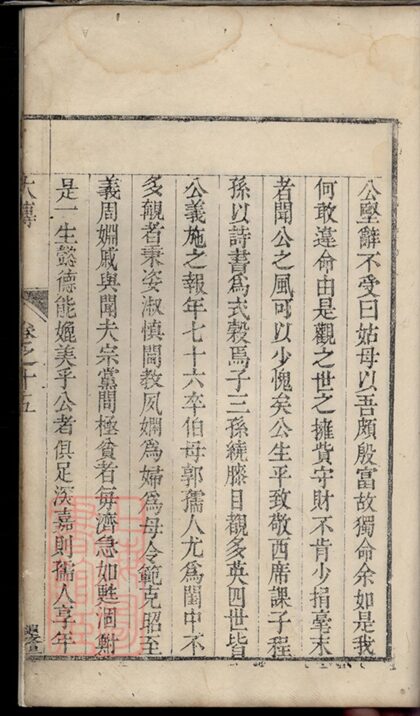 公堅辭不受曰姑母以吾頗殷富故獨命余如是我
何敢違命由是觀之世之擁貲守財不肯少捐毫末
者聞公之風可以少愧矣公生平致敬西席課子程
孫以詩書爲式穀焉子三孫繞膝目覩多英四世皆
公義施之報年七十六卒伯母郭孺人尤爲閫中不
多覯者秉姿淑慎閫教夙嫻爲婦爲母令範克昭至
義周婣戚與聞夫宗黨間極貧者毎濟急如甦涸鮒
是一生懿德能媲美乎公者俱足深嘉則孺人享年
大傳
卷之十五